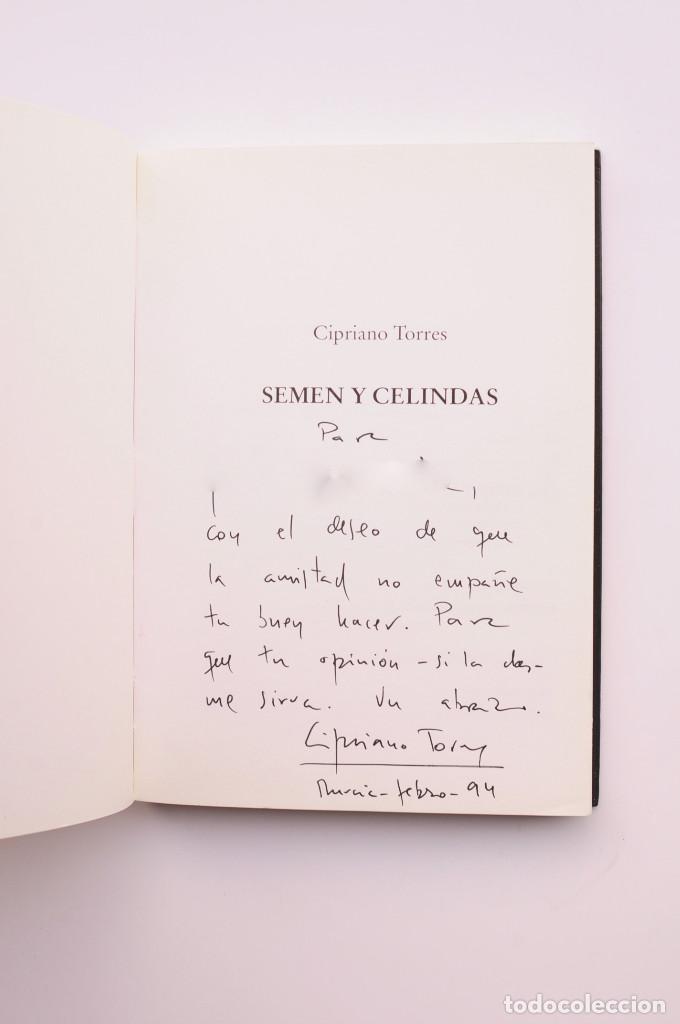 Cipriano Torres
SEMEN Y CELINDAS
Para
con el deseo de que
la amistad no empañe
tu buen hacer. Para
que tu opinión - si la das -
me sirva. Un abrazo.
Cipriano Torres
Murcia - febro - 94
todocoleccion